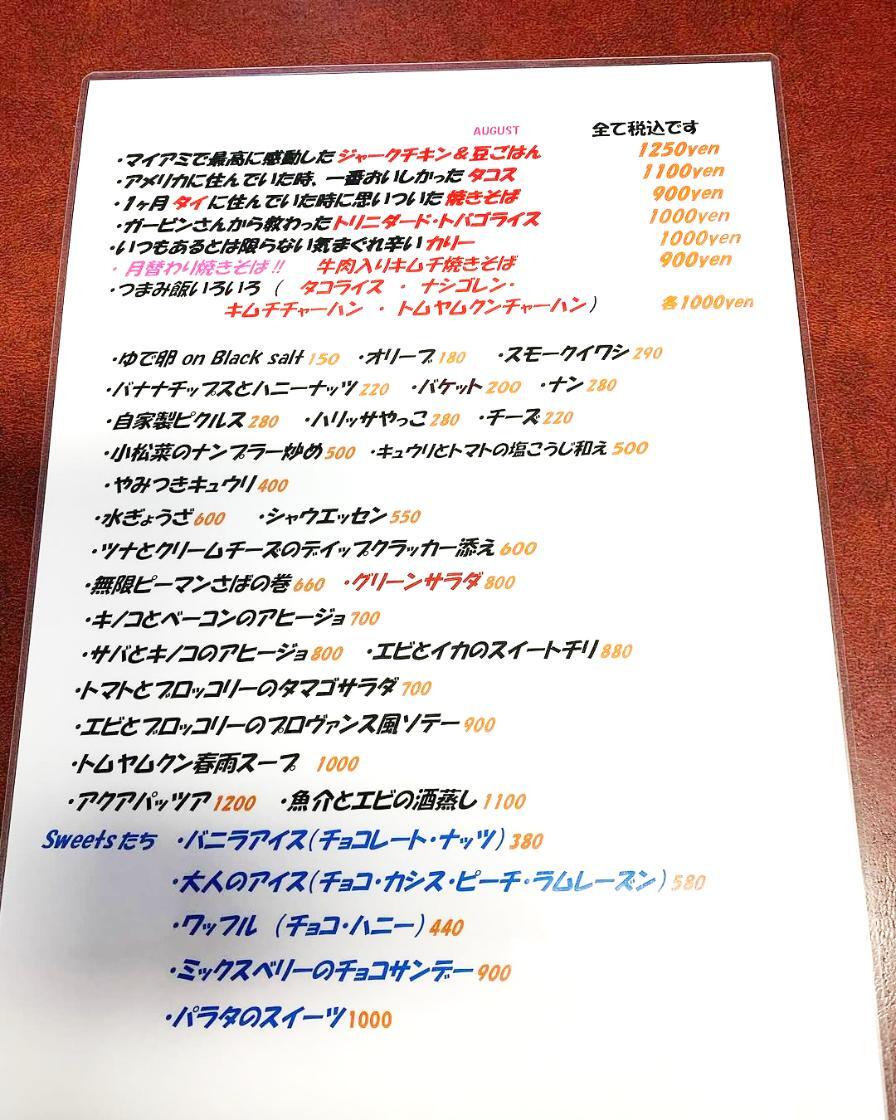 AUGUST 全て税込です
・マイアミで最高に感動したジャークチキン&豆ごはん 1250yen
・アメリカに住んでいた時、一番おいしかったタコス 1100yen
・1ヶ月タイに住んでいた時に思いついた焼きそば 900yen
・ガービンさんから教わったトリニダード・トバゴライス 1000yen
・いつもあるとは限らない気まぐれ辛いカリー 1000yen
・月替わり焼きそば!! 牛肉入りキムチ焼きそば 900yen
・つまみ飯いろいろ( タコライス ・ ナシゴレン・
キムチチャーハン ・ トムヤムクンチャーハン) 各1000yen
・ゆで卵 on Black salt 150 ・オリーブ 180 ・スモークイワシ 290
・バナナチップスとハニーナッツ 220 ・バケット 200 ・ナン 280
・自家製ピクルス 280 ・ハリッサやっこ 280 ・チーズ 220
・小松菜のナンプラー炒め 500 ・キュウリとトマトの塩こうじ和え 500
・やみつきキュウリ 400
・水ぎょうざ 600 ・シャウエッセン 550
・ツナとクリームチーズのディップクラッカー添え 600
・無限ピーマンさばの巻 660 ・グリーンサラダ 800
・キノコとベーコンのアヒージョ 700
・サバとキノコのアヒージョ 800 ・エビとイカのスイートチリ 880
・トマトとブロッコリーのタマゴサラダ 700
・エビとブロッコリーのプロヴァンス風ソテー 900
・トムヤムクン春雨スープ 1000
・アクアパッツア 1200 ・魚介とエビの酒蒸し 1100
Sweetsたち ・バニラアイス(チョコレート・ナッツ) 380
・大人のアイス(チョコ・カシス・ピーチ・ラムレーズン) 580
・ワッフル (チョコ・ハニー) 440
・ミックスベリーのチョコサンデー 900
・パラタのスイーツ 1000